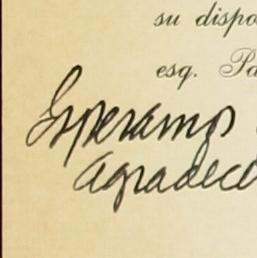 su dispo
esq. Pa
Esperamos
agradece